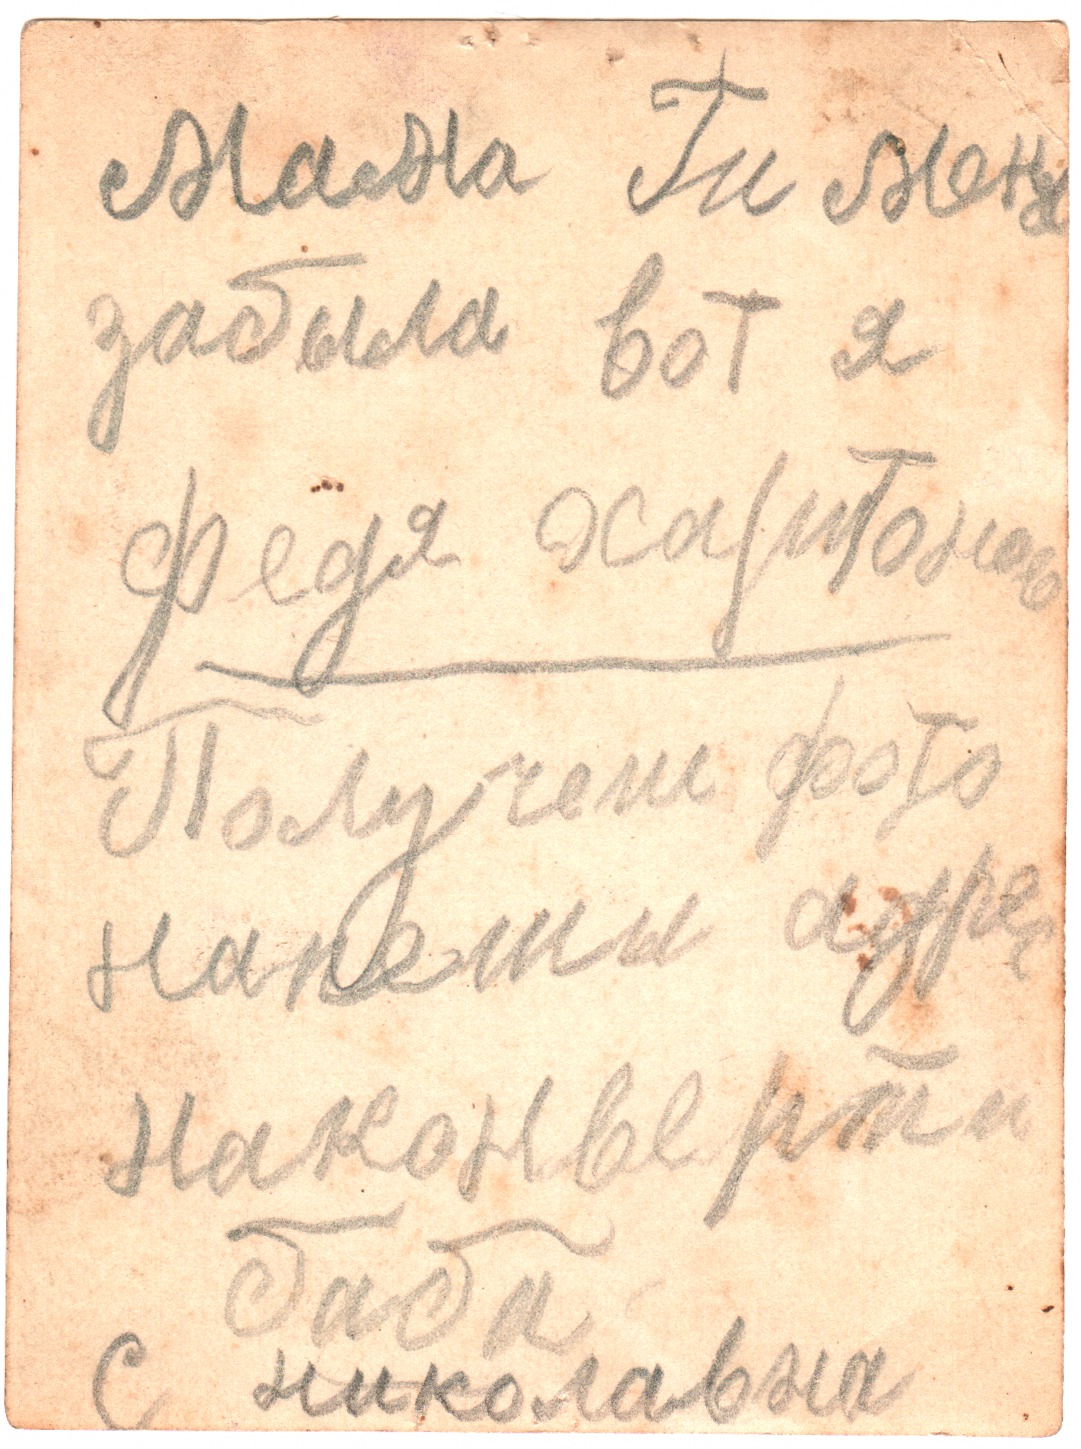 Мама Ти меня
забыла вот я
федя харитоново
Получеш фото
напеши адрес
наконверти
баба
С николавна